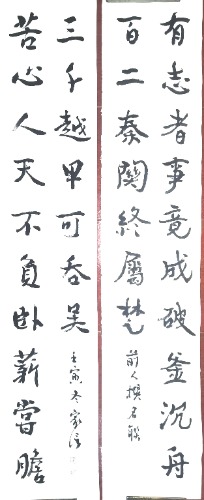 有志者事竟成破釜沉舟
百二秦關終屬楚
前人撰名聯
苦心人天不負卧薪嘗膽
三千越甲可吞吳
壬寅冬家